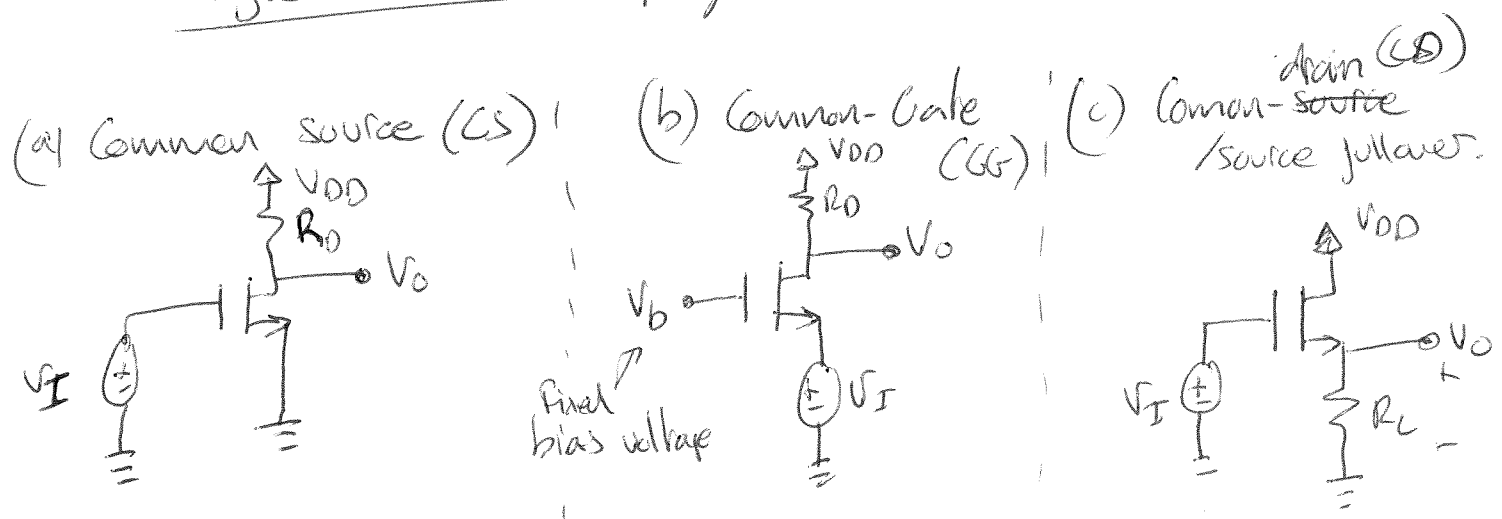 (a) Common source (CS)
VDD
RD
Vo
VI
(b) Common-Gate
(CG)
VDD
RD
Vo
Vb
Fixed
bias voltage
VI
drain (CD)
(c) Common-source
/source follower.
VDD
Vo
+
-
RL
VI